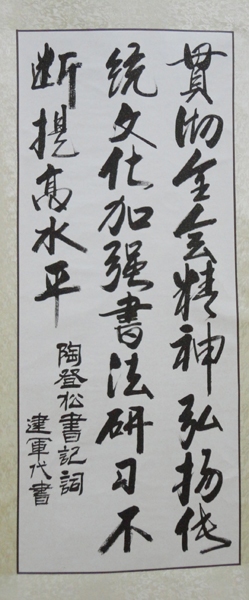 贯彻全会精神弘扬传
统文化加强书法研习不
断提高水平
陶登松書記詞
建軍代書